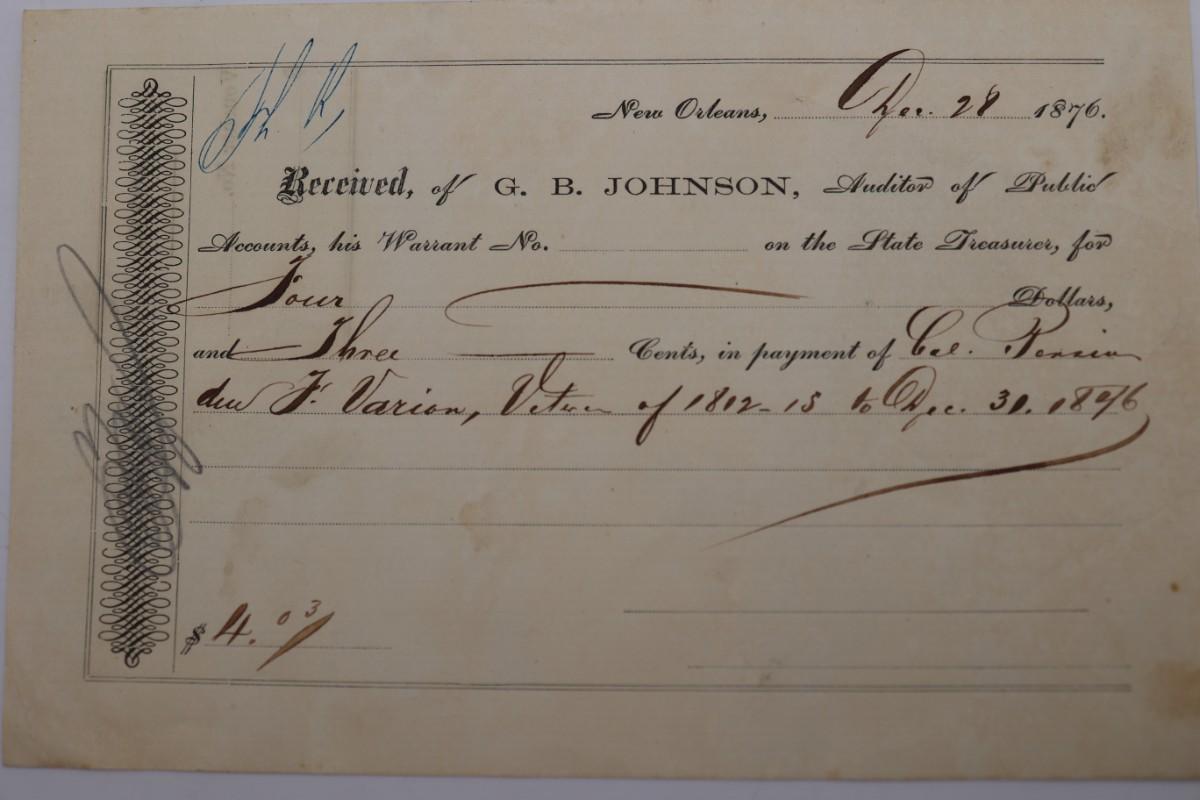 New Orleans, Dec. 28 1876.
Received, of G. B. JOHNSON, Auditor of Public
Accounts, his Warrant No. on the State Treasurer, for
Four Dollars,
and Three Cents, in payment of Bal. Pension
due F. Varion, Veteran of 1812-15 to Dec. 31. 1876
$ 4.03